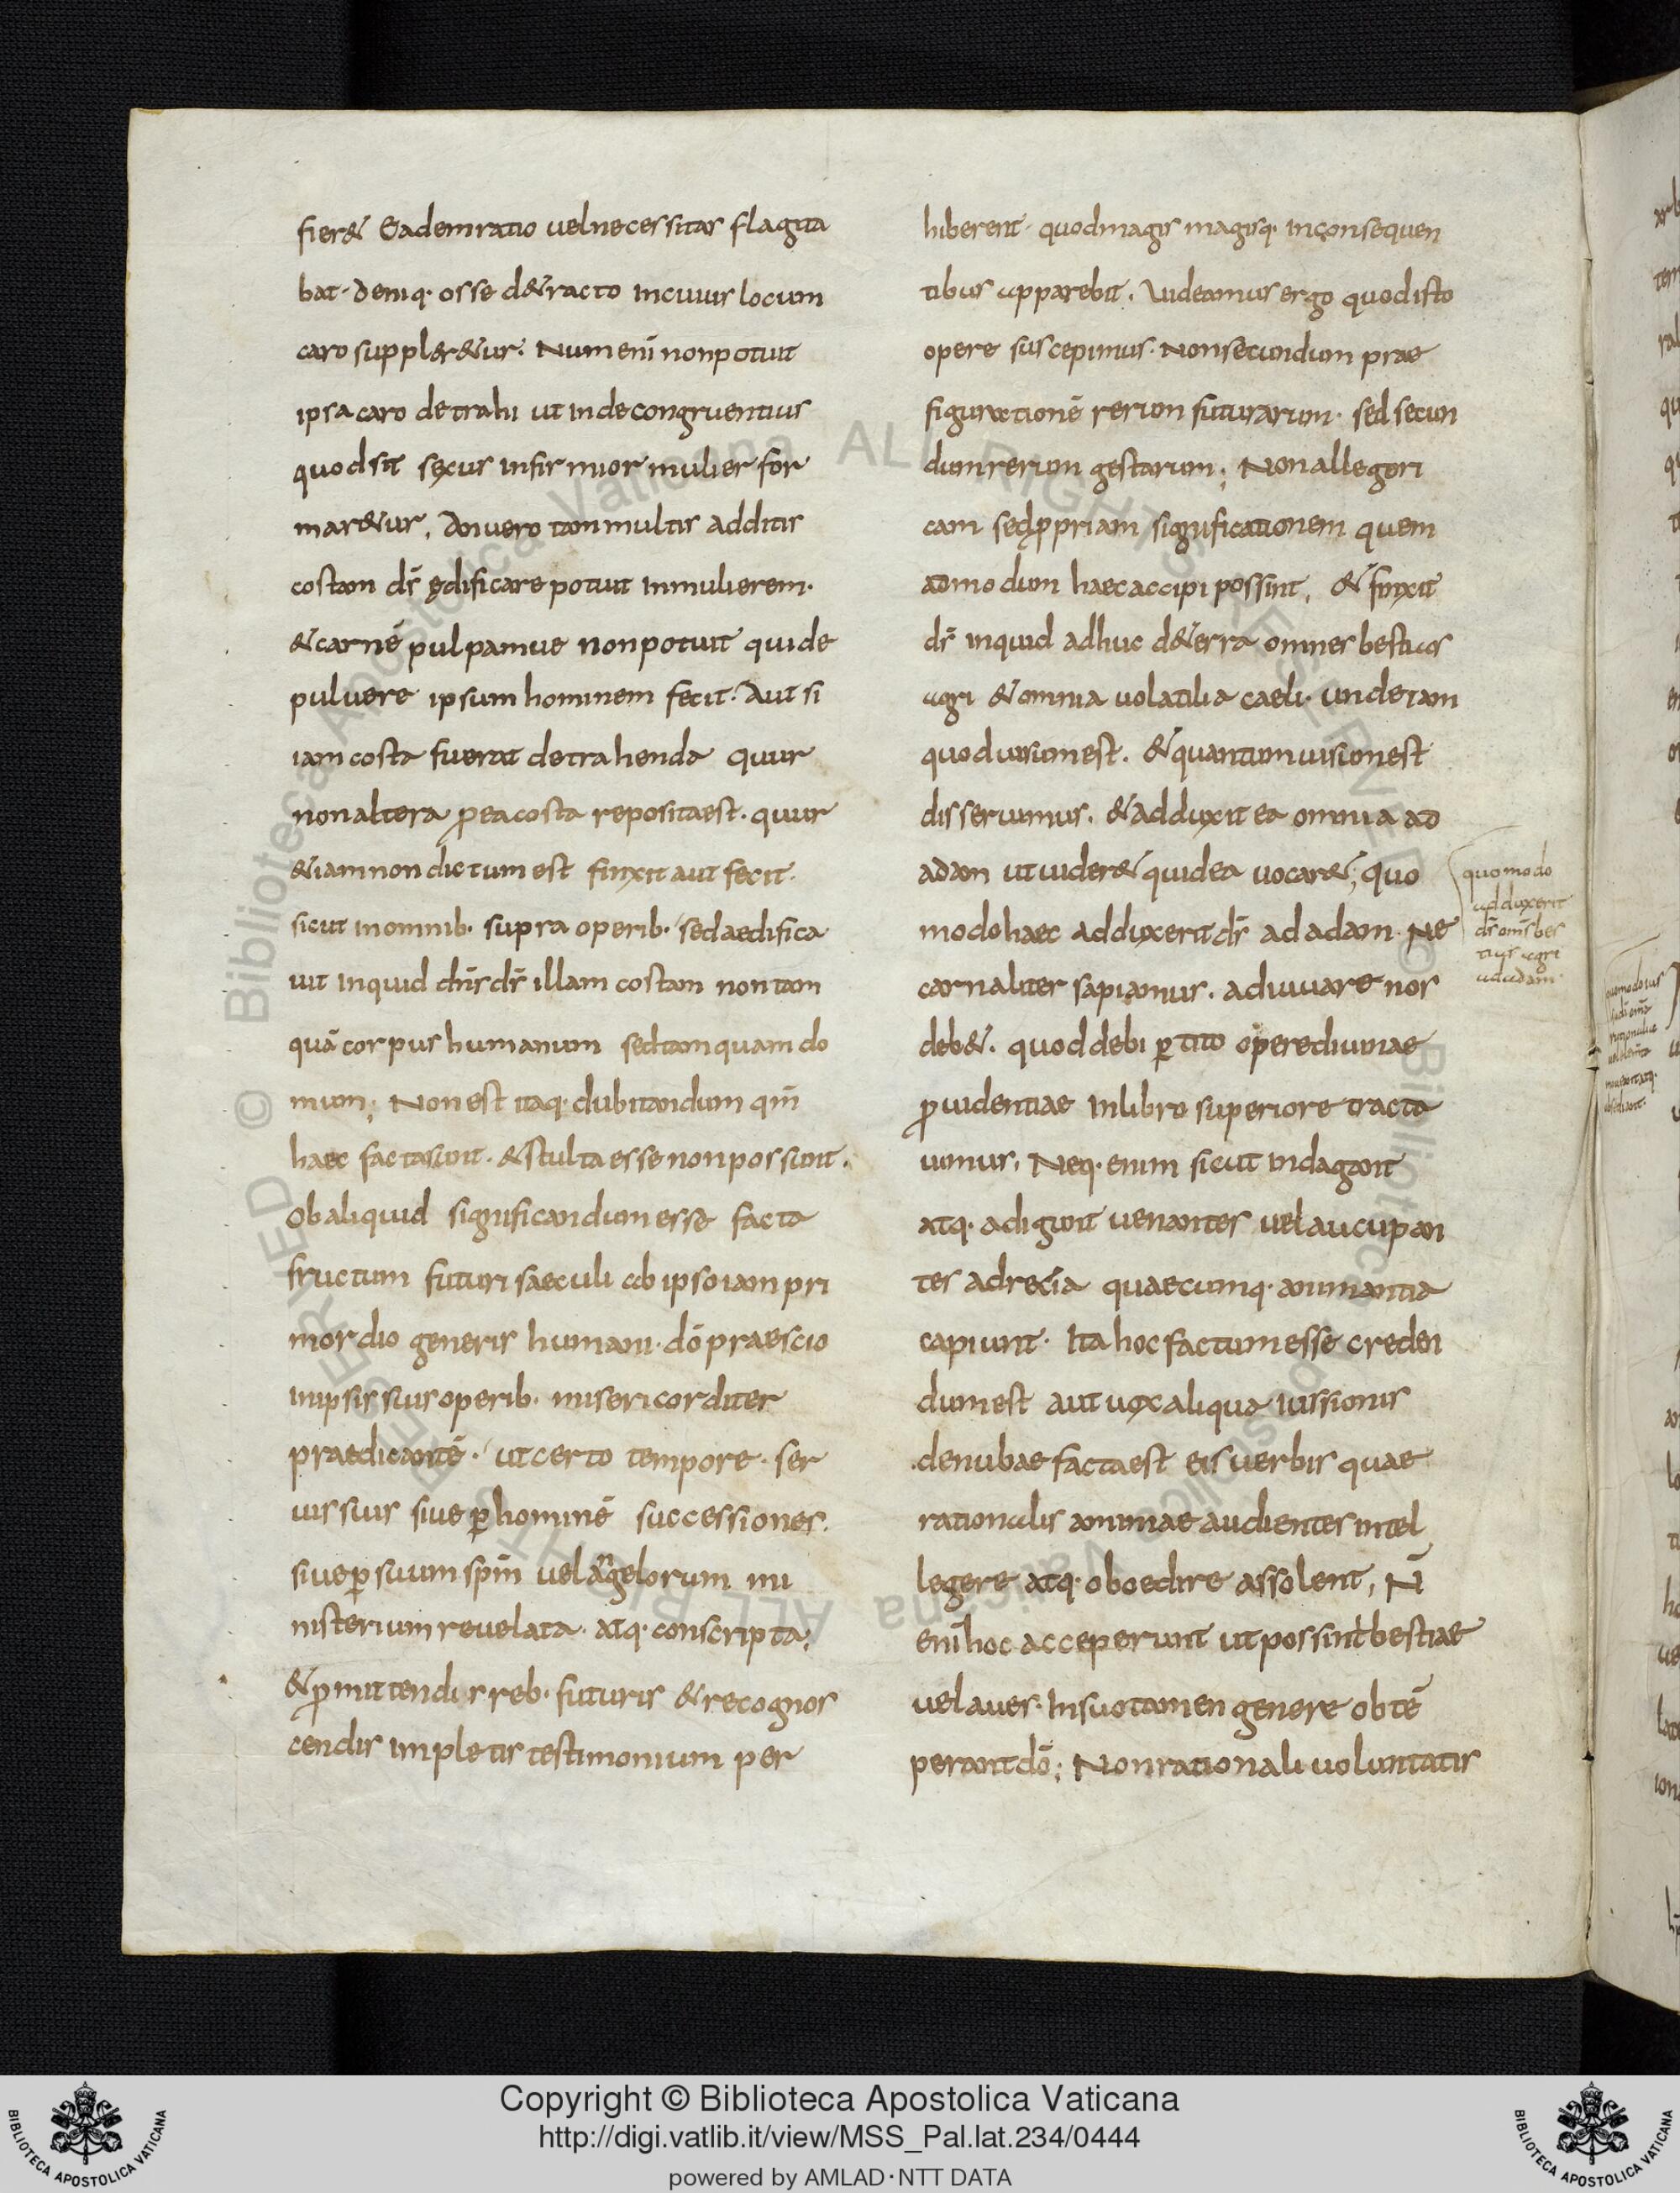 fier& Eadem ratio uel necessitas flagita
bat. deniq· osse d&racto in cuius locum
caro suppler&ur. Num eni non potuit
ipsa caro detrahi ut inde congruentius
quod sit sexus infirmior mulier for
mar&ur, An uero tam multis additis
costam dś ędificare potuit in mulierem.
& carnē pulpamue non potuit qui de
puluere ipsum hominem fecit. Aut si
iam costa fuerat detrahenda quur
non altera ꝓ ea costa reposita est. quur
& iam non dictum est finxit aut fecit.
sicut in omnib· supra operib· sed aedifica
uit inquid dn̄s dś illam costam non tam
quā corpus humanum sed tam quam do
mum; Non est itaq· dubitandum qm̄
haec facta sunt. & stulta esse non possunt.
Ob aliquid significandum esse facta
fructum futuri saeculi ab ipso iam pri
mordio generis humani· dō praescio
in ipsis suis operib· misericorditer
praedicantē. ut certo tempore· ser
uis suis siue ꝑ hominē successiones.
siue ꝑ suum spm̄ uel angelorum mi
nisterium reuelata· atq· conscripta;
& ꝓmittendis reb· futuris & recognos
cendis impletis testimonium per
hiberent· quod magis magisq· in consequen
tibus apparebit. Uideamus ergo quod isto
opere suscepimus· Non secundum prae
figurationē rerum futurarum· sed secun
dum rerum gestarum; Non allegori
cam sed ꝓpriam significationem quem
admodum haec accipi possint, & finxit
dś inquid adhuc d&erra omnes bestias
agri & omnia uolatilia caeli· unde iam
quod uisum est. & quantum uisum est
disseruimus. & adduxit ea omnia ad
adam ut uider& quid ea uocar&; quo
modo haec adduxerit dś ad adam· Ne
carnaliter sapiamus. adiuuare nos
deb&. quod de biꝑtito opere diuinae
ꝓuidentiae in libro superiore tracta
uimus. Neq· enim sicut indagant
atq· adigunt uenantes uel aucupan
tes ad retia quaecumq· animantia
capiunt· Ita hoc factum esse creden
dum est aut uox aliqua iussionis
de nubae facta est eis uerbis quae
rationalis animae audientes intel
legere atq· oboedire assolent, N̄
eni hoc acceperunt ut possint bestiae
uel aues· In suo tamen genere obtē
perant dō; Non rationali uoluntatis
quomodo
adduxerit
dś om̄s bes
tias agri
ad adam·
Copyright © Biblioteca Apostolica Vaticana
http://digi.vatlib.it/view/MSS_Pal.lat.234/0444
powered by AMLAD·NTT DATA
BIBLIOTECA APOSTOLICA VATICANA
BIBLIOTECA APOSTOLICA VATICANA